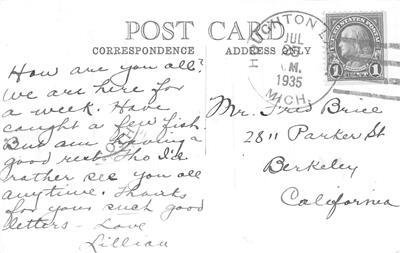 POST CARD
CORRESPONDENCE
ADDRESS ONLY
How are you all?
We are here for
a week. Have
caught a few fish.
But am having a
good rest. Tho I'd
rather see you all
anytime. Thanks
for your such good
letters - Love
Lillian
HOUGHTON L
JUL
M.
1935
MICH.
UNITED STATES POSTAGE
1 1
Mr. Fred Brice
2811 Parker St
Berkeley
California